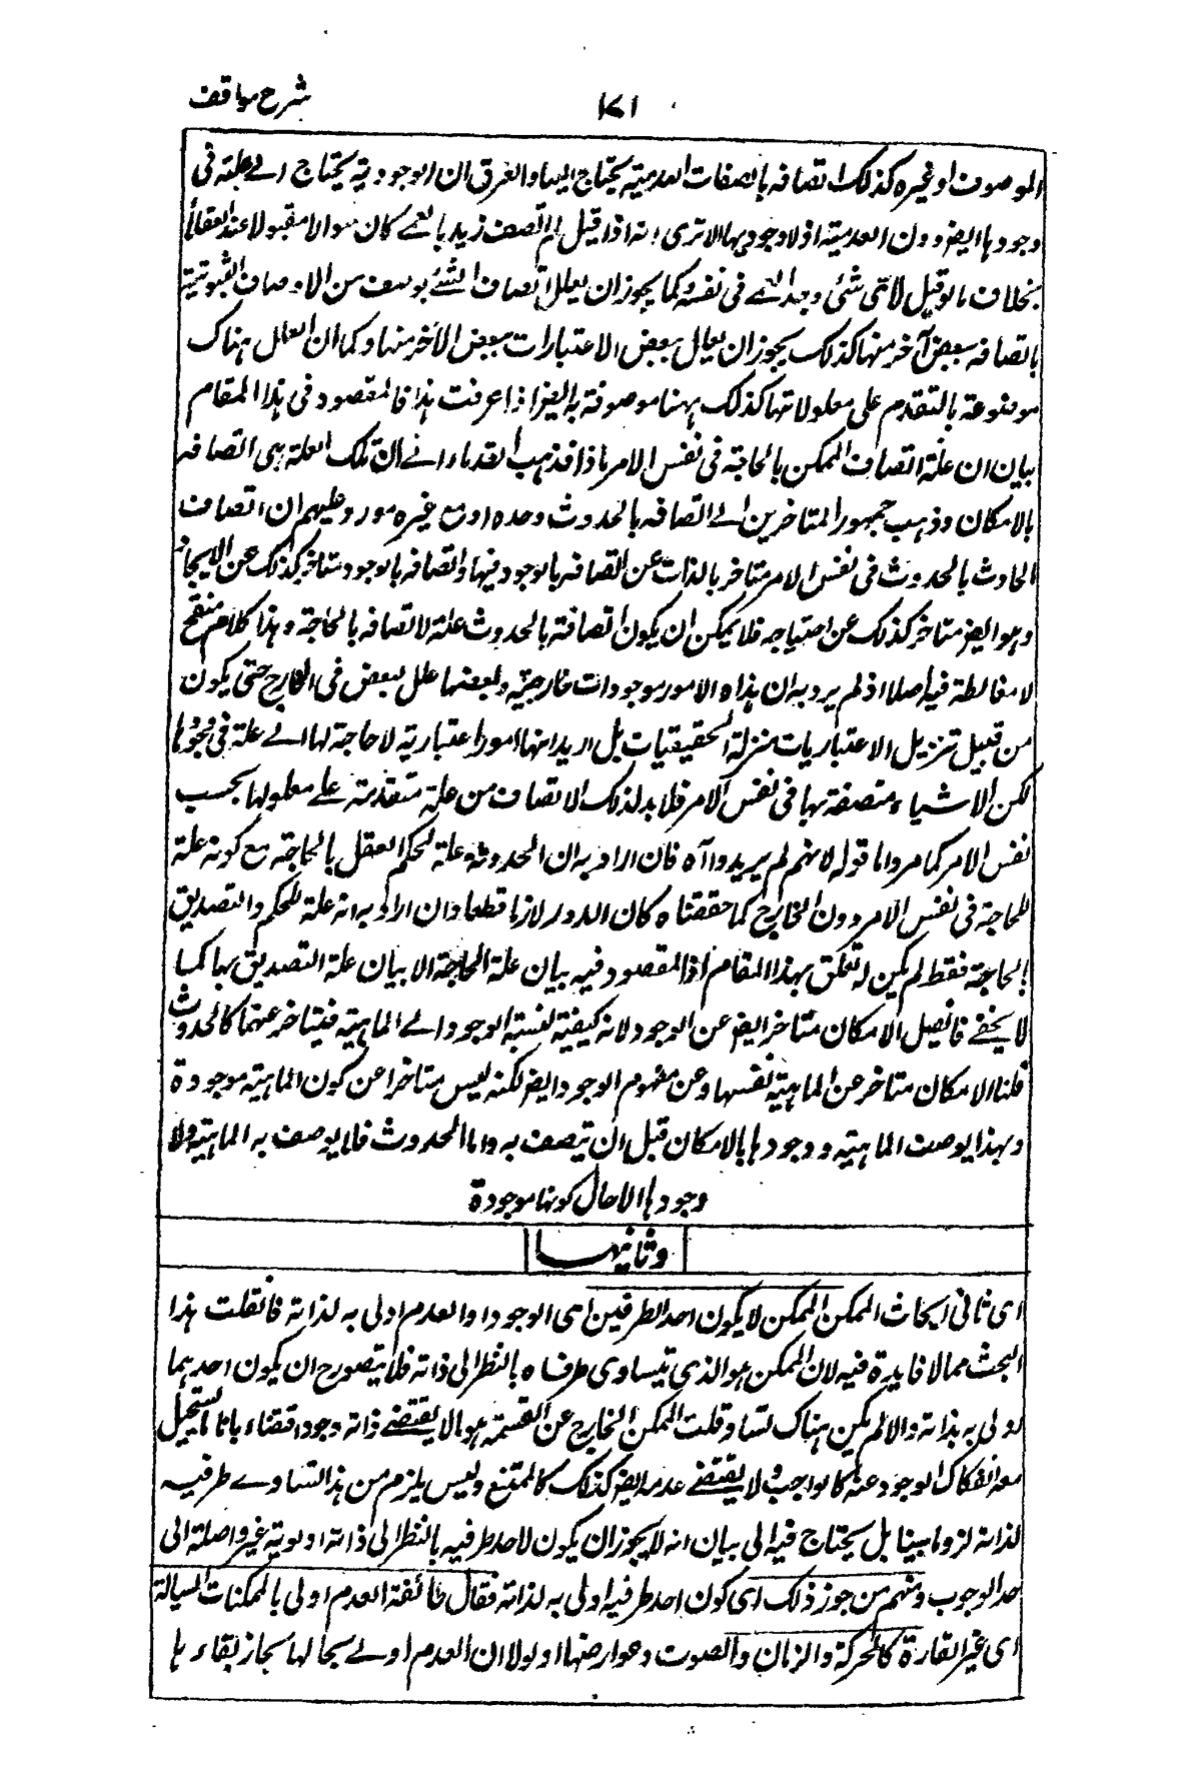 شرح مواقف
١٧١
الموصوف او غيره كذلك اتصافه بالصفات العدمية يحتاج اليها والفرق ان الوجودية يحتاج الى علة فى
وجودها ايضا دون العدمية اذ لا وجود لها الا ترى انه اذا قيل لم اتصف زيد بالعمى كان سوالا مقبولا عند العقلاء
بخلاف ما لو قيل لاى شئ وجد العمى فى نفسه وكما يجوز ان يعلل اتصاف الشئ بوصف من الاوصاف الثبوتية
باتصافه ببعض آخر منها كذلك يجوز ان يعلل بعض الاعتبارات ببعض الآخر منها وكما ان العلل هناك
موصوفة بالتقدم على معلولاتها كذلك ههنا موصوفة به ايضا اذا عرفت هذا فالمقصود فى هذا المقام
بيان ان علة اتصاف الممكن بالحاجة فى نفس الامر ماذا فذهب القدماء الى ان تلك العلة هى اتصافه
بالامكان وذهب جمهور المتاخرين الى اتصافه بالحدوث وحده او مع غيره ورد عليهم ان اتصاف
الحادث بالحدوث فى نفس الامر متاخر بالذات عن اتصافه بالوجود فيها واتصافه بالوجود متاخر كذلك عن الايجاد
وهو ايضا متاخر كذلك عن احتياجه فلا يمكن ان يكون اتصافه بالحدوث علة لاتصافه بالحاجة وهذا كلام منقح
لا مغالطة فيه اصلا اذ لم يرد به ان هذه الامور موجودات خارجية وبعضها علل لبعض فى الخارج حتى يكون
من قبيل تنزيل الاعتباريات منزلة الحقيقيات بل اريد انها امور اعتبارية لا حاجة لها الى علة فى وجودها
لكن الاشياء متصفة بها فى نفس الامر فلا بد لذلك الاتصاف من علة متقدمة على معلولها بحسب
نفس الامر كما مر واما قوله لانهم لم يريدوا آه فان اراد به ان الحدوث علة لحكم العقل بالحاجة مع كونه علة
للحاجة فى نفس الامر دون الخارج كما حققناه كان الدور لازما قطعا وان اراد به انه علة للحكم والتصديق
بالحاجة فقط لم يكن له تعلق بهذا المقام اذ المقصود فيه بيان علة الحاجة لا بيان علة التصديق بها كما
لا يخفى فان قيل الامكان متاخر ايضا عن الوجود لانه كيفية لنسبة الوجود الى الماهية فيتاخر عنهما كالحدوث
قلنا الامكان متاخر عن الماهية نفسها وعن مفهوم الوجود ايضا لكنه ليس متاخرا عن كون الماهية موجودة
ولهذا يوصف الماهية ووجودها بالامكان قبل ان يتصف به واما الحدوث فلا يوصف به الماهية ولا
وجودها الا حال كونها موجودة
وثانيها
اى ثانى ابحاث الممكن الممكن لا يكون احد الطرفين اى الوجود او العدم اولى به لذاته فان قلت هذا
البحث مما لا فايدة فيه لان الممكن هو الذى يتساوى طرفاه بالنظر الى ذاته فلا يتصور ح ان يكون احدهما
اولى به بذاته والا لم يكن هناك تساو قلت الممكن الخارج عن القسمة هو ما لا يقتضى ذاته وجوده اقتضاء باتا يستحيل
معه انفكاك الوجود عنه كالواجب ولا يقتضى عدمه ايضا كذلك كالممتنع وليس يلزم من هذا تساوى طرفيه
لذاته لزوما بينا بل يحتاج فيه الى بيان انه لا يجوز ان يكون لاحد طرفيه بالنظر الى ذاته اولوية غير واصلة الى
حد الوجوب ومنهم من جوز ذلك اى كون احد طرفيه اولى به لذاته فقال طائفة العدم اولى بالممكنات السيالة
اى غير القارة كالحركة والزمان والصوت وعوارضها اذ لولا ان العدم اولى بها لجاز بقاءها